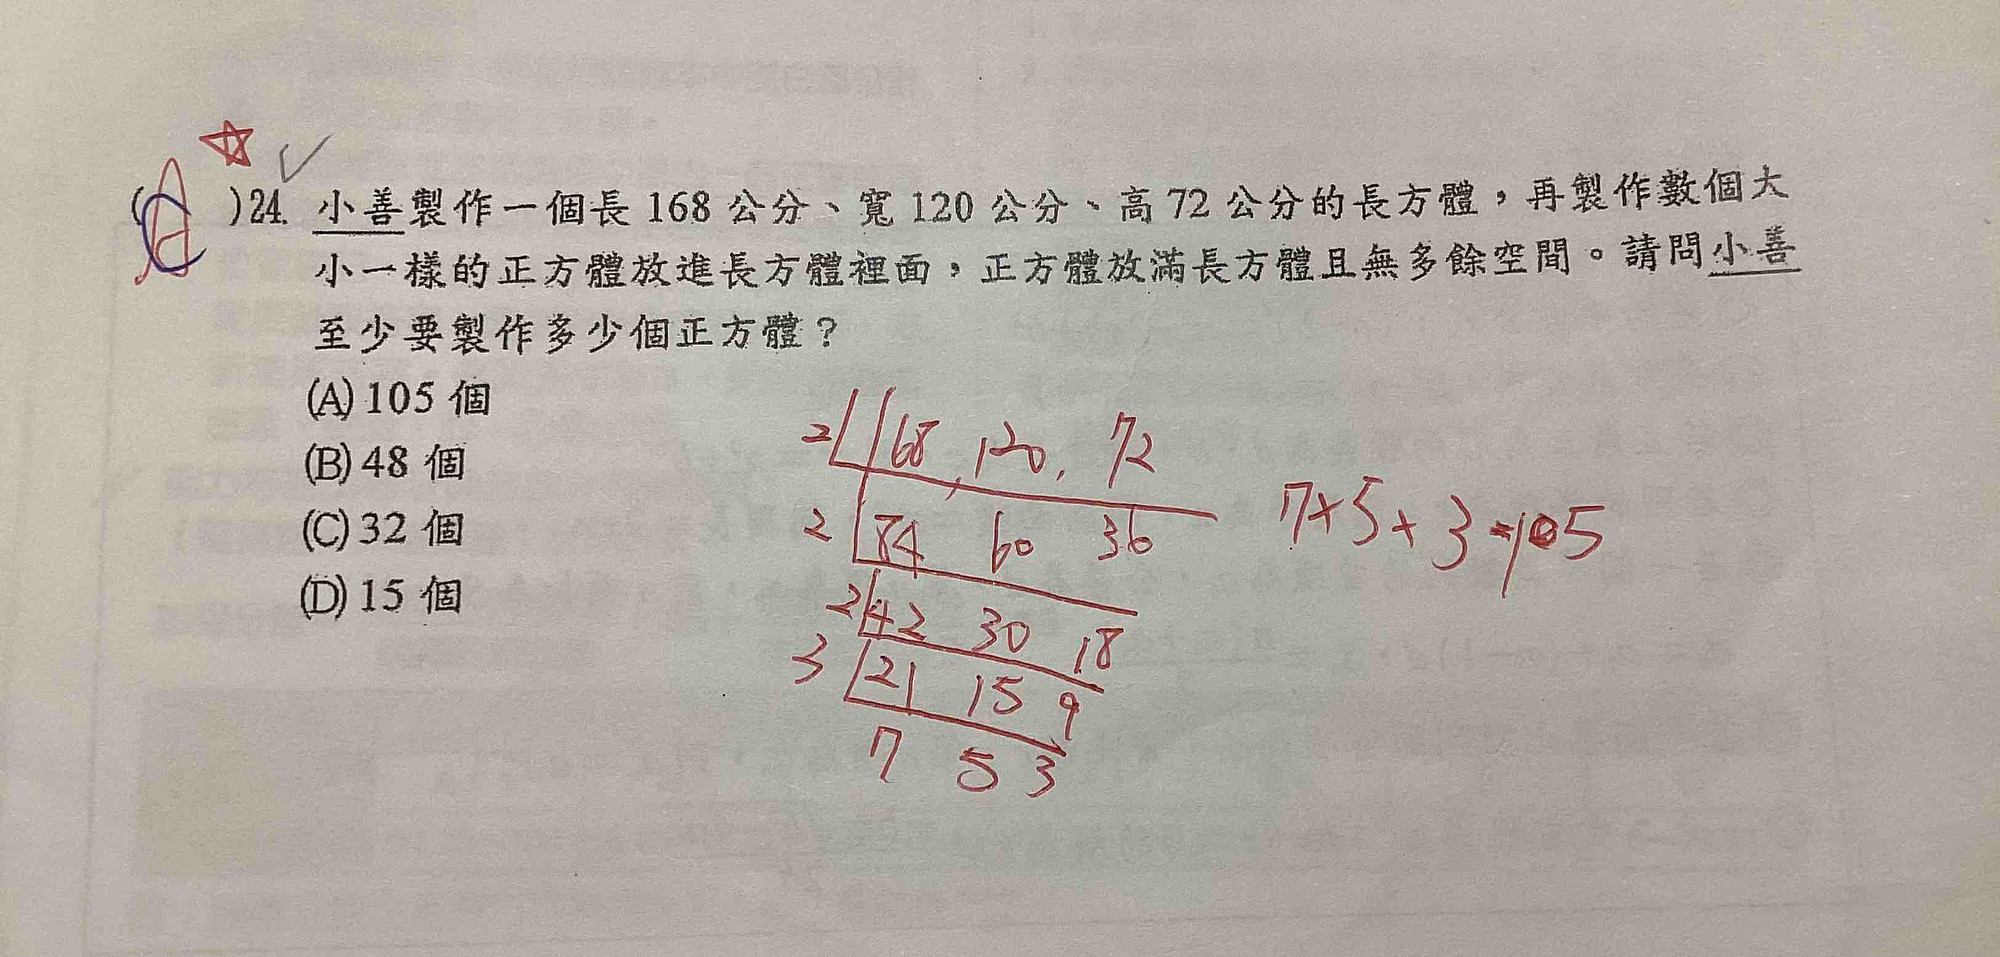 ( A )24. 小善製作一個長 168 公分、寬 120 公分、高 72 公分的長方體，再製作數個大
小一樣的正方體放進長方體裡面，正方體放滿長方體且無多餘空間。請問小善
至少要製作多少個正方體？
(A) 105 個
(B) 48 個
(C) 32 個
(D) 15 個
2 168, 120, 72
2 84 60 36
2 42 30 18
3 21 15 9
7 5 3
7×5×3=105